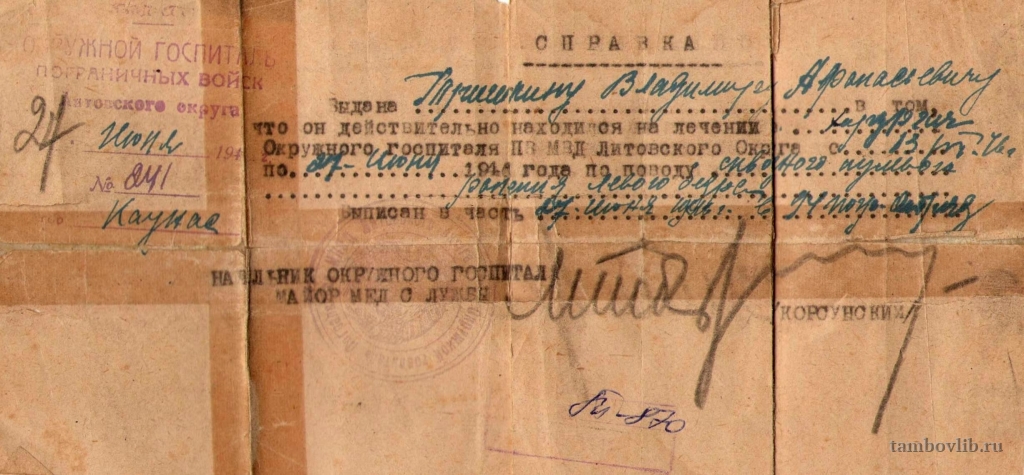 ОКРУЖНОЙ ГОСПИТАЛЬ
ПОГРАНИЧНЫХ ВОЙСК
Литовского округа
27
Июня 194
№ 241
Каунас
СПРАВКА
Выдана Владимиру Афанасьевичу в том,
что он действительно находился на лечении в хирургич
Окружного госпиталя ПВ МВД Литовского Округа с 13.
по 27 июня 194 года по поводу пулевого
ранения левого бедра
Выписан в часть 27 июня
НАЧАЛЬНИК ОКРУЖНОГО ГОСПИТАЛ
МАЙОР МЕД СЛУЖБЫ
КОРСУНСКИЙ
870
tambovlib.ru